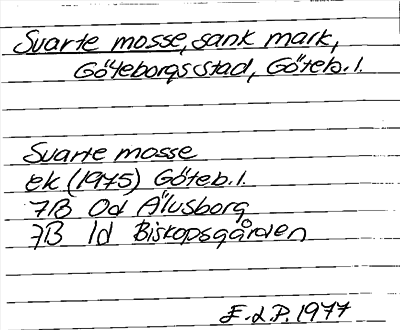 Svarte mosse, sank mark,
Göteborgs stad, Göteb. l.
Svarte mosse
ek (1975) Göteb. l.
7B 0d Älvsborg
7B 1d Biskopsgården
E.L.P. 1977